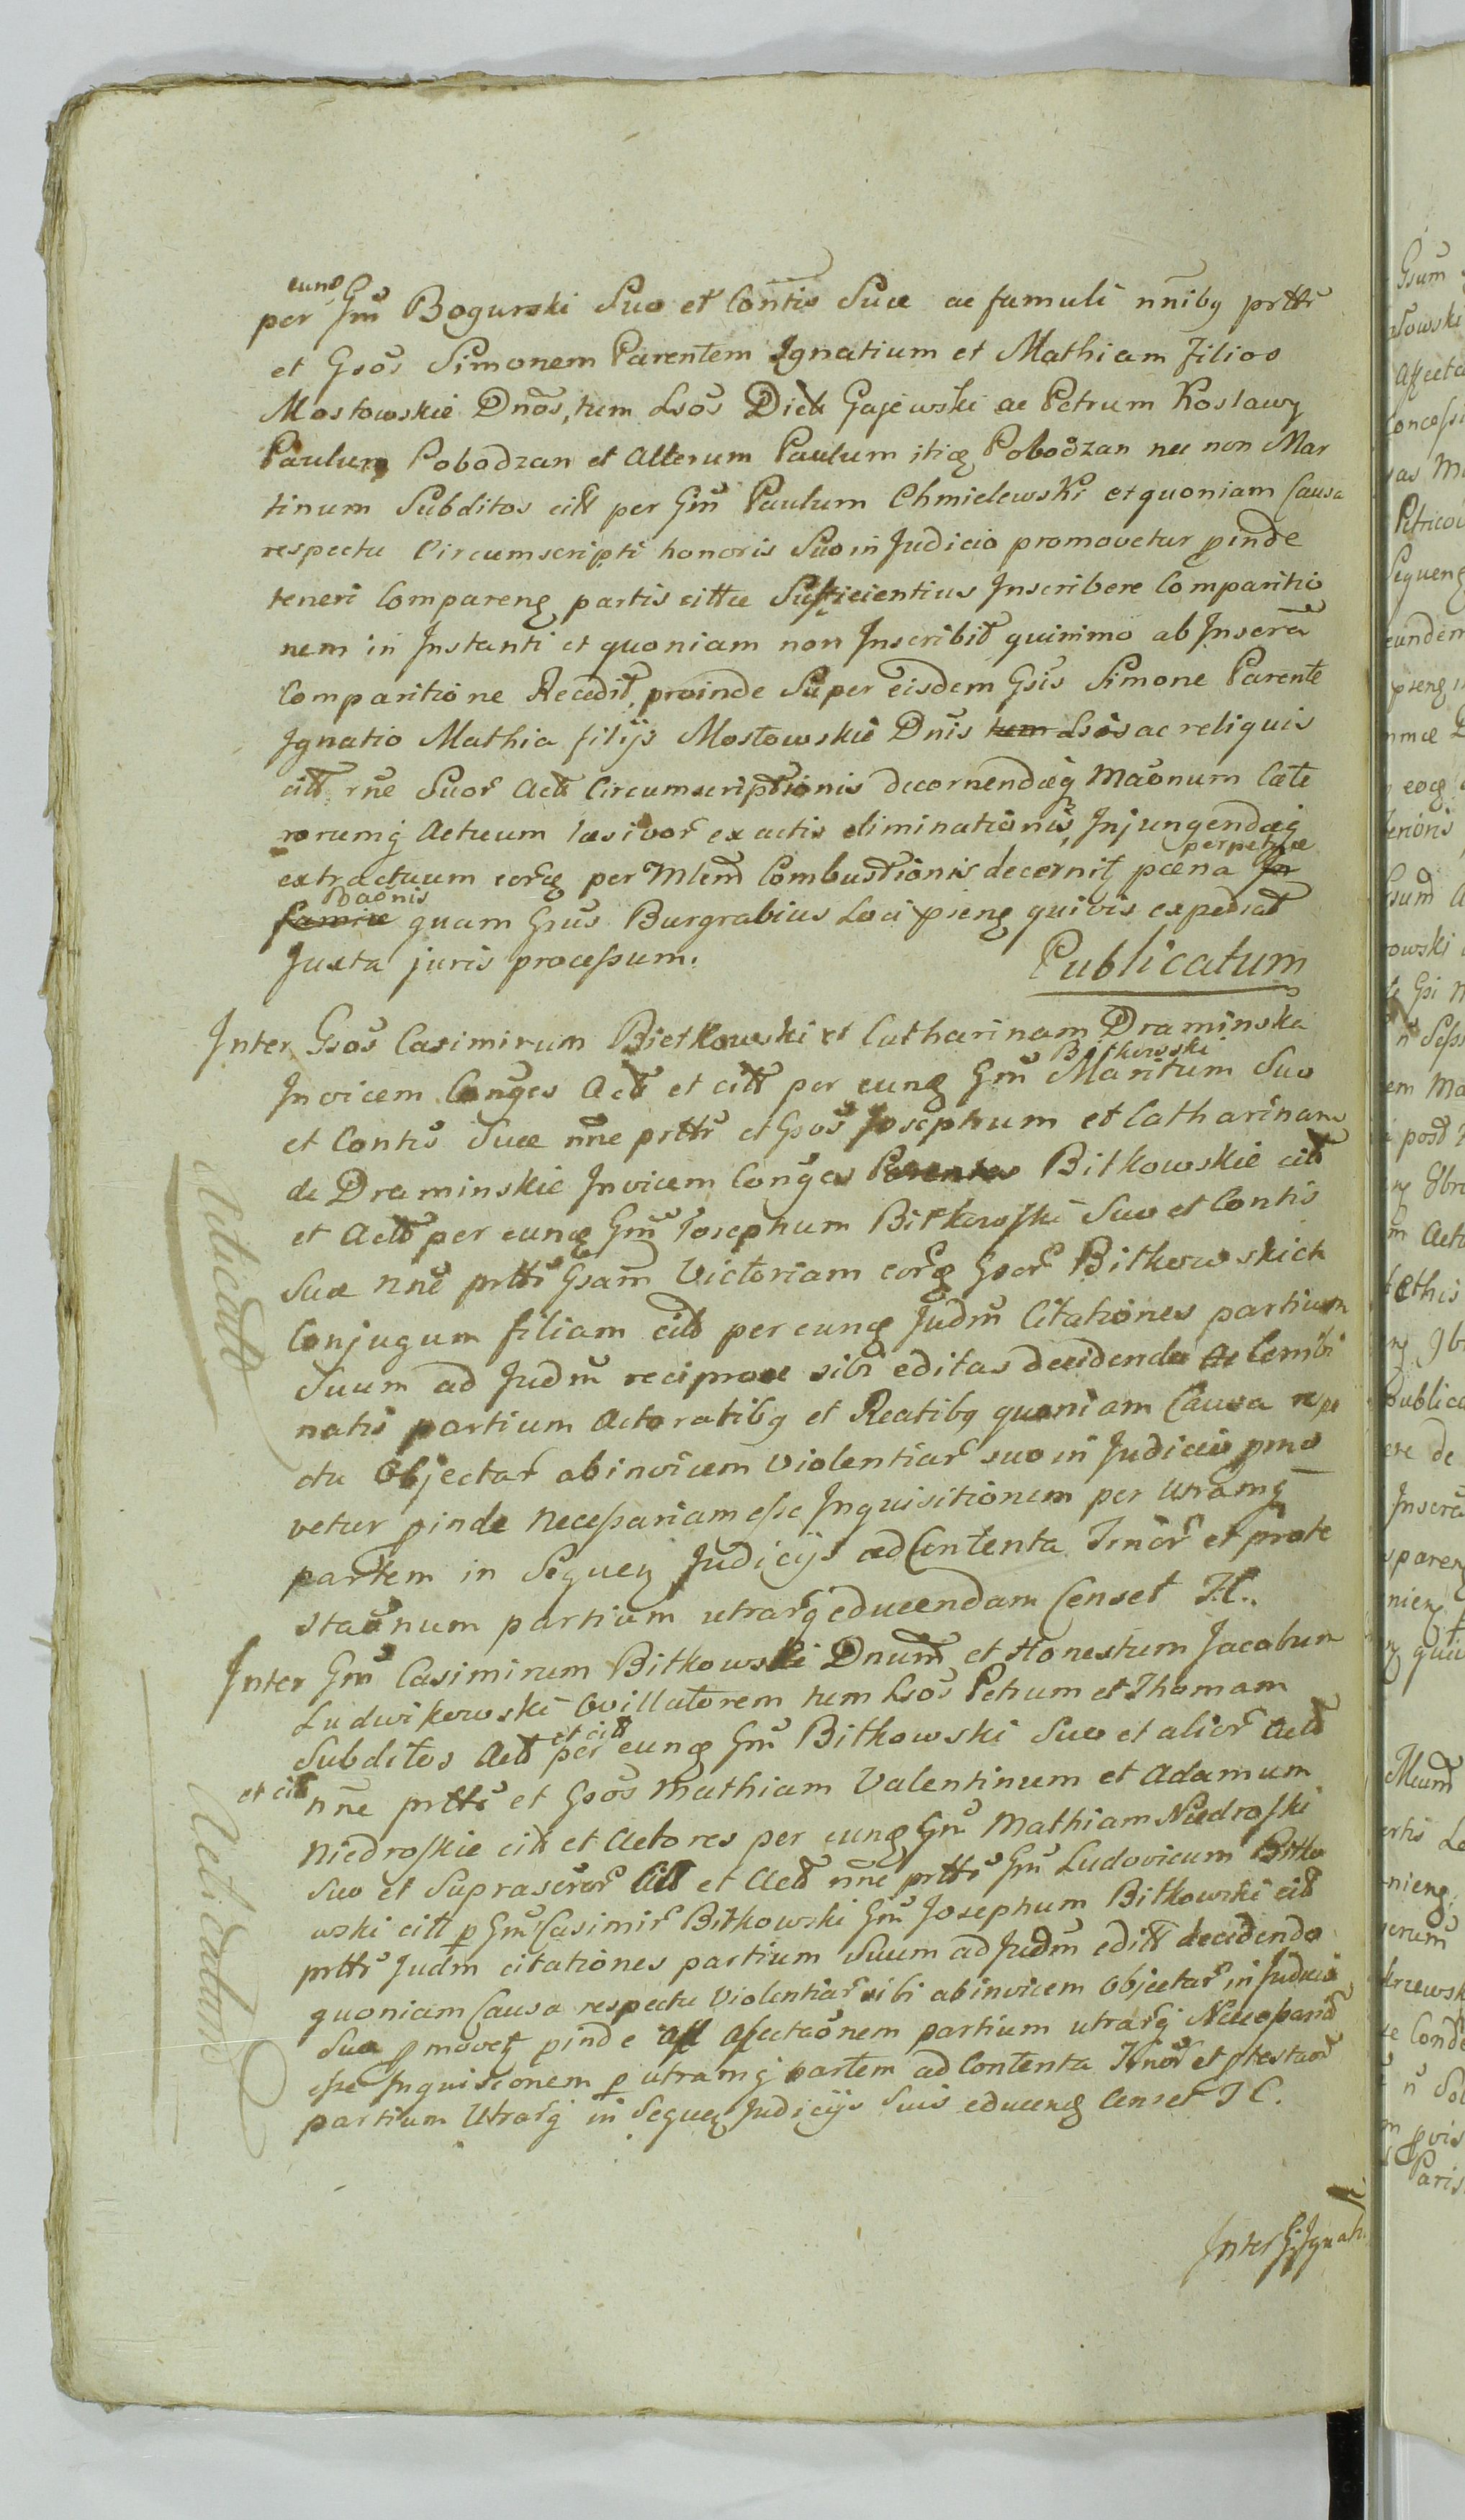 eund
per Gm Bogurski Suo et Contis Suæ ac famuli nnibq prttr
et Gsos Simonem Parentem Ignatium et Mathiam Filios
Mostowskie Dnos, tum Lsos Dictt Gajewski ac Petrum Koslawy
Paulum Pobodzan et Alterum Paulum itid Pobodzan nec non Mar
tinum Subditos citt per Gm Paulum Chmielewski et quoniam Causa
respectu Circumscripti honoris Suo in Judicio promovetur pinde
teneri Comparend partis cittæ Sufficientius Inscribere Comparitio
nem in Instanti et quoniam non Inscribit quinimo ab Inserta
Comparitione Recedit, proinde Super eisdem Gsis Simone Parente
Ignatio Mathia filijs Mostowskie Dnis tum Lsis ac reliquis
citt rne Suor Act Circumscriptionis decernendæq Maonum Cæte
rorumq Actuum læsivor ex actis eliminationis, Injungendæq
extractuum eord per Mlem Combustionis decernit pæna In
perpetuæ
famiæ quam Gsus Burgrabius Loci psens quivis expediat
Baonis
Juxta juris processum.
Publicatum
Inter Gsos Casimirum Bietkowski et Catharinam Draminska
Invicem Conges Act et citt per eund Gm Maritum Suo
Bitkowski
et Contis Suæ nne prttr et Gsos Josephum et Catharinam
de Draminskie Invicem Conges Parentes Bitkowskie citt
et Act per eund Gm Josephum Bitkowski Suo et Contis
Suæ nne prttr Gsam Victoriam eord Gsor Bitkowskich
Conjugum filiam citt per eund Judm Citationes partium
Suum ad Judm reciproce sibi editas decidendo ac Combi
natis partium Actoratibq et Reatibq quoniam Causa respe
ctu Objectar abinvicem violentiar suo in Judicio pmo
vetur pinde necessariam esse Inquisitionem per utramq
partem in Sequen Judicijs ad Contenta Tenor et prote
staonum partium utrarq educendam Censet J.C.
Inter Gm Casimirum Bitkowski Dnum et Honestum Jacobum
Ludwikowski Ovillatorem tum Lsos Petrum et Thomam
Subditos Act et citt per eund Gm Bitkowski Suo et alior Act
et citt nne prttr et Gsos Mathiam Valentinum et Adamum
Niedroskie citt et Actores per eund Gm Mathiam Niedroski
Suo et Suprascror Citt et Act nne prttr Gm Ludovicum Bitko
wski citt p Gm Casimir Bitkowski Gm Josephum Bitkowski citt
prttr Judm citationes partium Suum ad Judm editt decidendo
quoniam Causa respectu violentiar sibi abinvicem Objectar in Judicio
Suo pmovet pinde ad afectaonem partium utrarq Necessariam
esse Inquisicionem p utramq partem ad Contenta Tenor et ptestaor
partium Utrarq in Sequen Judicijs Suis educend Censet J C.
Inter G Ignati